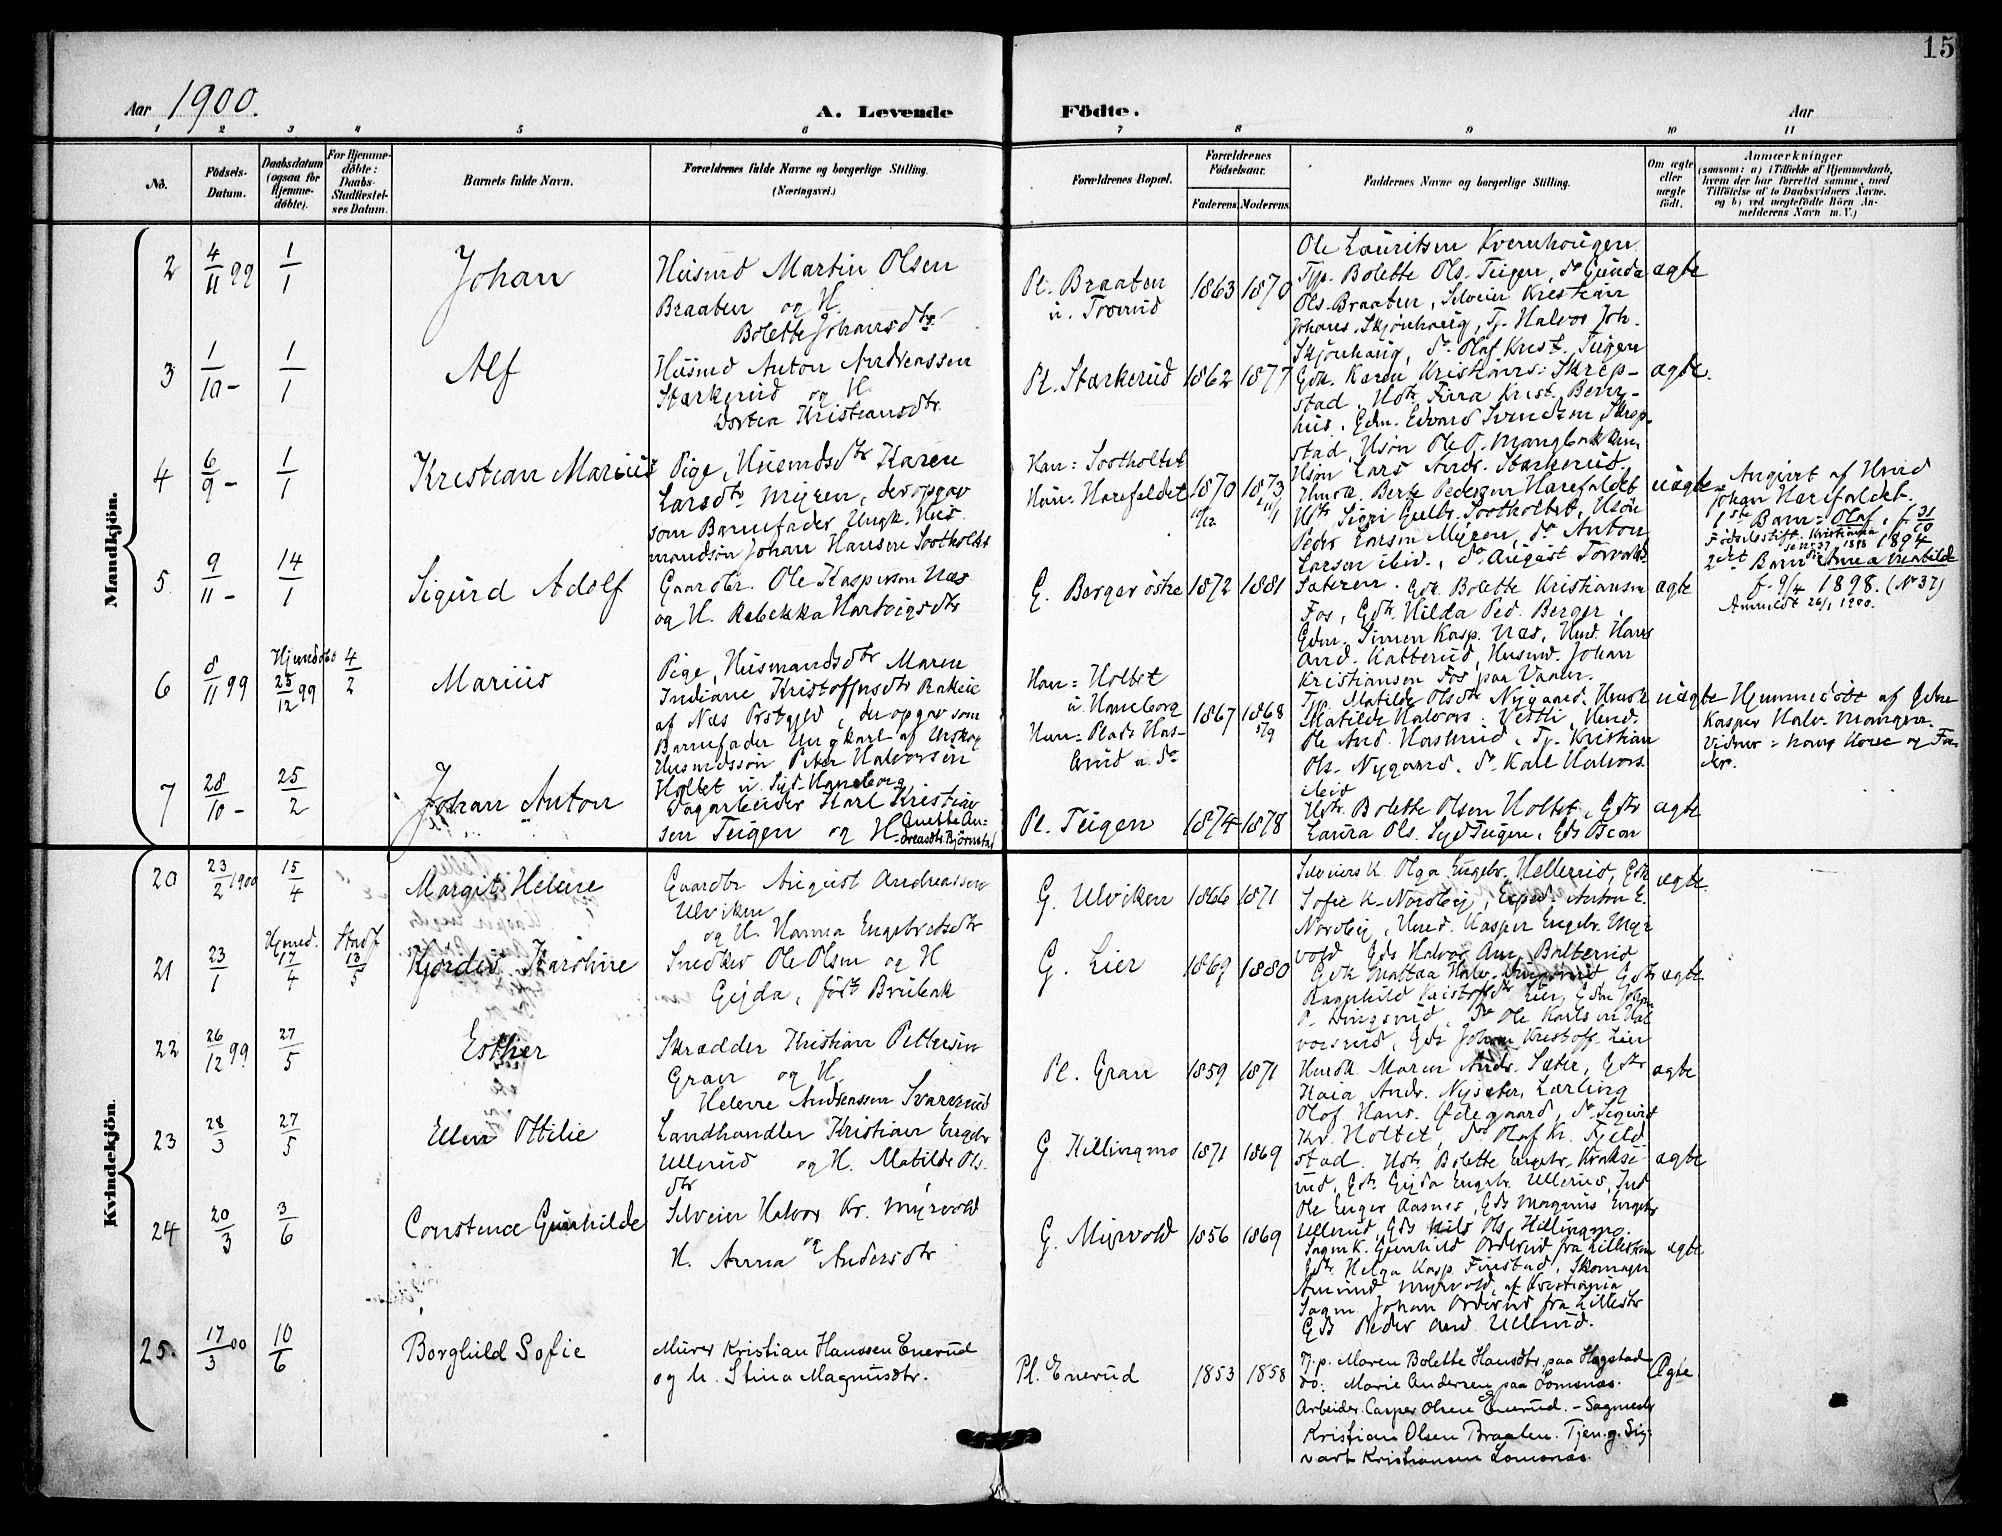 15
Aar 1900.
A. Levende Födte.
Aar
1 2 3 4 5 6 7 8 9 10 11
No.
Födsels-
Datum.
Daabsdatum
(ogsaa for
Hjemme-
döbte).
For Hjemme-
döbte:
Daabs-
Stadfæstel-
ses Datum.
Barnets fulde Navn.
Forældrenes fulde Navne og borgerlige Stilling.
(Næringsvei.)
Forældrenes Bopæl.
Forældrenes
Födselsaar.
Faderens. Moderens.
Faddernes Navne og borgerlige Stilling.
Om ægte
eller
uægte
födt.
Anmærkninger
(saasom: a) i Tilfælde af Hjemmedaab,
hvem der har forrettet samme, med
Tilföielse af to Daabsvidners Navne,
og b) ved uægtefödte Börn An-
melderens Navn m. V.)
Mandkjön.
2
4/11 99
1/1
Johan
Husmd Martin Olsen
Braaten og H.
Bolette Johansdtr
Pl. Braaten
u. Toverud
1863
1870
Ole Lauritsen Kvernhougen
Tjp. Bolette Ols. Teigen, do Gunda
Ols. Braaten, Selveier Kristian
Johans. Skjönhaug, Tj. Halvor Joh.
Skjönhaug, do Olaf Krist. Teigen
ægte
3
1/10 -
1/1
Alf
Husmd Anton Andreassen
Stærkerud og H.
Dortea Kristiansdtr.
Pl. Stærkerud
1862
1877
Gdk. Karen Kristians. Skrep-
stad, Hdtr Firra Krist. Berg-
hus, Gdm. Edvard Svendsen Skrep-
stad, Hsön Ole P. Mangbakken,
Hsön Lars Andr. Stærkerud.
ægte.
4
6/9 -
1/1
Kristian Marius
Pige, Husmdsdtr Karen
Larsdtr Myren, der opgav
som Barnefader Ungk. Hus-
mandsön Johan Hansen Sootholtet
Han: Sootholtet
Hun: Harefaldet
1870
10/12
1873
11/1
Husk. Berte Pedersen Harefaldet
Hdtr Sigri Gulbr. Sootholtet, Hsön
Peder Larsen Myren, do Anton
Larsen ibid., do August Torvalds.
Sæteren.
uægte
Angivet af Husmd
Johan Harefaldet.
1ste Barn: Olaf, f. 31/10
Födselsstift. Kristiania
1894
2det Barn Anna Mathilde
f. 9/4 1898. (No 37)
Anmeldt 26/1 1900.
5
9/11 -
14/1
Sigurd Adolf
Gaardbr. Ole Kaspersen Næs
og H. Rebekka Hartvigsdtr
G. Berger östre
1872
1881
Gdk. Bolette Kristiansen
Fos, Gdk. Hilda Ped. Berger,
Gdm. Simen Kasp. Næs, Husmd. Hans
And. Katterud, Husmd. Johan
Kristiansen Fos paa Vaaler.
ægte
6
8/11 99
Hjemdöbt
25/12 99
4/2
Marius
Pige, Husmandsdtr Maren
Indiane Kristoffersdtr Bakeie
af Næs Prstgjld, der opgav som
Barnefader Ungkarl af Urskog
Husmdssön Peter Halvorsen
Holtet u. Syd-Haneborg
Han: Holtet
u. Haneborg
Hun: Plads Has-
lerud u. do
1867
1868
5/9
Tj. Matilde Olsdtr Nygaard, Husk
Matilde Halvors. Vestli, Husmd.
Ole And. Haslerud, Tj. Kristian
Ols. Nygaard, do Karl Halvors.
ibid
uægte
Hjemmedöbt af Gdm
Kasper Halv. Mangen.
Vidner: hans Kone og Fa-
der.
7
28/10 -
25/2
Johan Anton
Dagarbeider Karl Kristian-
sen Teigen og H. Anette An-
dreasdtr Björnstad
Pl. Teigen
1874
1878
Hdtr. Bolette Olsen Holtet, Gdtr
Laura Ols. Syd Teigen, Gds Oscar
ægte
Kvindekjön.
20
23/2 1900
15/4
Margit Helene
Gaardbr August Andreassen
Ulviken
og H. Hanna Engebretsdtr
G. Ulviken
1866
1871
Selveiers K. Olga Engebr. Hellerud, Gdk
Sofie K. Nordby, Exped. Anton E.
Nordby, Husmd. Kasper Engebr. Myr-
vold, Gds Halvor Am. Bolterud
ægte
21
23/1
Hjemd.
17/4
Stadf
13/5
Hjördis Karoline
Snedker Ole Olsen og H
Gyda, födt Brubak
G. Lier
1869
1880
Gdk Mattea Halv. Dingsrud, Gdtr
Ragnhild Kristoffdtr Lier, Gdm Johan
P. Dingsrud, do Ole Karlsen Hal-
vorsrud, Gds Johan Kristoff. Lier
ægte
22
26/12 99
27/5
Esther
Skrædder Kristian Pettersen
Gran og H.
Helene Andreassen Svarerud
Pl. Gran
1859
1871
Husk Maren Andr. Sæter, Gdtr
Kaia Andr. Nysæter, Lærling
Olaf Hans. Ödegaard, do Sigurd
Kr. Holtet, do Olaf Kr. Fjeld-
stad.
ægte
23
28/3
27/5
Ellen Ottilie
Landhandler Kristian Engebr
Ullerud og H. Matilde Ols-
dtr
G. Killingmo
1871
1869
Hdtr Bolette Engebr. Kraksi-
rud, Gdtr Gyda Engebr. Ullerud, Snd
Ole Enger Aasnes, Gds Magnus Engebr
Ullerud, Gds Nils Ols. Killingmo.
ægte
24
20/3
3/6
Constence Gunhilde
Selveier Halvor Kr. Myrvold
og
H. Anna Andersdtr
G. Myrvold
1856
1869
Sagm K. Gunhild Orderud fra Lilleström
Gdtr Helga Kasp. Finstad, Skomager
Amund Myrvold, af Kristiania
Sagm Johan Orderud fra Lillestr.
Gds Peder And. Ullerud.
ægte
25.
17/3 00
10/6
Borghild Sofie
Murer Kristian Hanssen Enerud
og h. Stina Magnusdtr.
Pl. Enerud
1853
1858
Tj.p. Maren Bolette Hansdtr. paa Hogstad
do: Marie Andersen paa Lomsnæs.
Arbeider Casper Olsen Enerud. - Sagmestr
Kristian Olsen Braaten. Tjen.g. Sig-
vart Kristiansen Lomsnæs.
Ægte